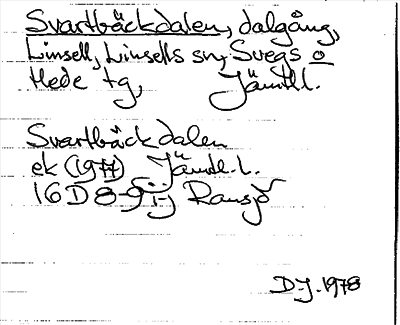 Svartbäckdalen, dalgång,
Linsell, Linsells sn, Svegs o
Hede tg, Jämtl.
Svartbäckdalen
ek (1977) Jämtl. l.
16D 8-9 i-j Ransjö
D-J. 1978